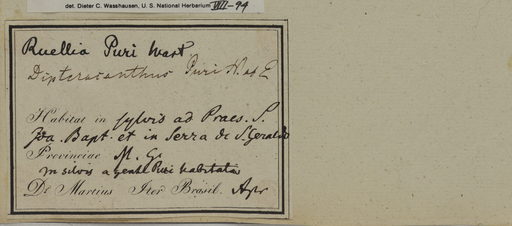 det. Dieter C. Wasshausen, U. S. National Herbarium VIII-94
Ruellia Puri Mart
Dipteracanthus Puri N. et E
Habitat in sylvis ad Praes. S.
Joa. Bapt. et in Serra de S. Geraldo
Provinciae M. G.
in silvis a gente Puri habitatis
Dr Martius Iter Brasil. Apr